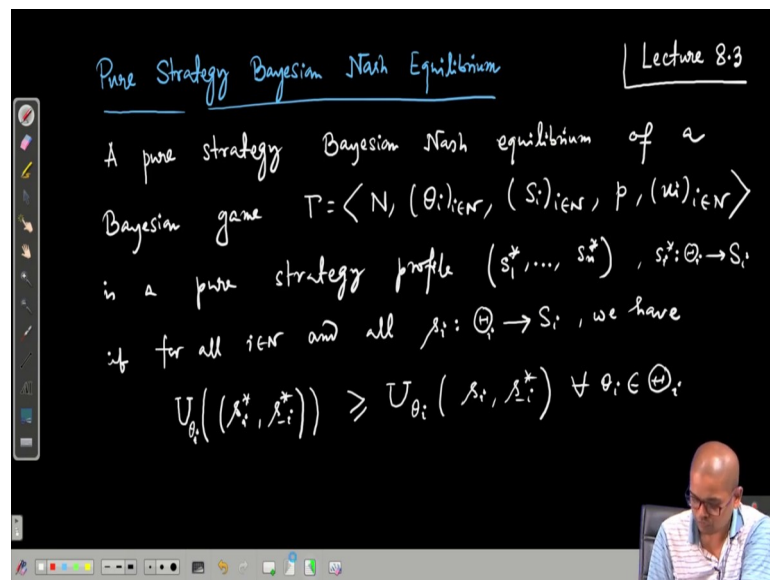 Pure Strategy Bayesian Nash Equilibrium
Lecture 8.3
A pure strategy Bayesian Nash equilibrium of a
Bayesian game Γ = ⟨N, (Θi)i∈N, (Si)i∈N, p, (ui)i∈N⟩
is a pure strategy profile (s1*, ..., sn*), si*: Θi → Si
if for all i∈N and all si: Θi → Si, we have
Uθi((si*, s-i*)) ≥ Uθi(si, s-i*) ∀ θi ∈ Θi